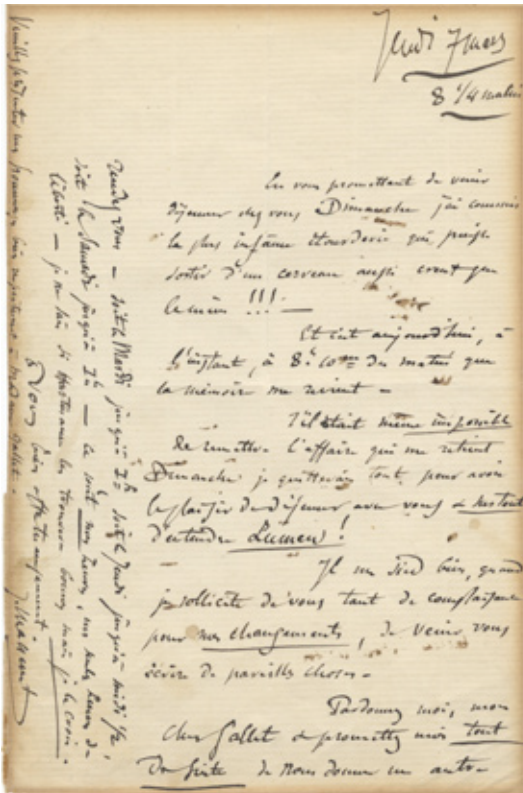 Jeudi 7 mars
8 1/4 matin
En vous promettant de venir
déjeuner chez vous Dimanche j'ai commis
la plus infâme étourderie qui puisse
sortir d'un cerveau aussi creux que
le mien !!! —
Et c'est aujourd'hui, à
l'instant, à 8h du matin que
la mémoire me revient —
S'il était même impossible
de remettre l'affaire qui me retient
Dimanche je quitterais tout, pour avoir
le plaisir de déjeuner avec vous & surtout
d'entendre Lumen !
Il me sied bien, quand
je sollicite de vous tant de complaisance
pour nos changements, de venir vous
écrire de pareilles choses —
Pardonnez moi, mon
cher Gallet & promettez moi tout
de suite de nous donner un autre
rendez vous — soit le Mardi jusqu'à soit le Jeudi jusqu'à midi 1/2,
soit le Samedi jusqu'à — ce sont mes heures, mes seules heures de
liberté — je ne sais si les trouvera bonnes mais je le crois —
à vous bien affectueusement.
J. Massenet
Veuillez présenter mes hommages bien respectueux à Madame Gallet.